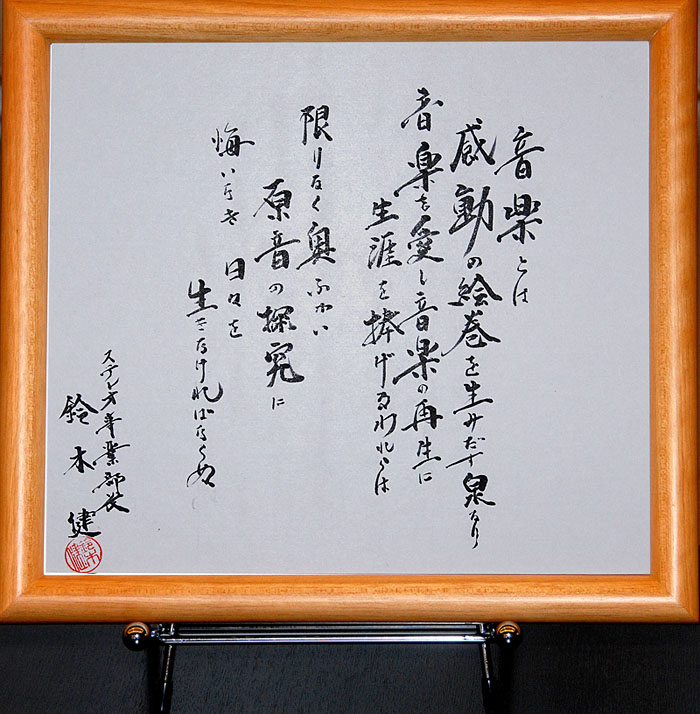 音楽とは
感動の絵巻を生みだす泉なり
音楽を愛し音楽の再生に
生涯を捧げるわれらは
限りなく奥ふかい
原音の探究に
悔いなき日々を
生きなければならぬ
ステレオ事業部長
鈴木健